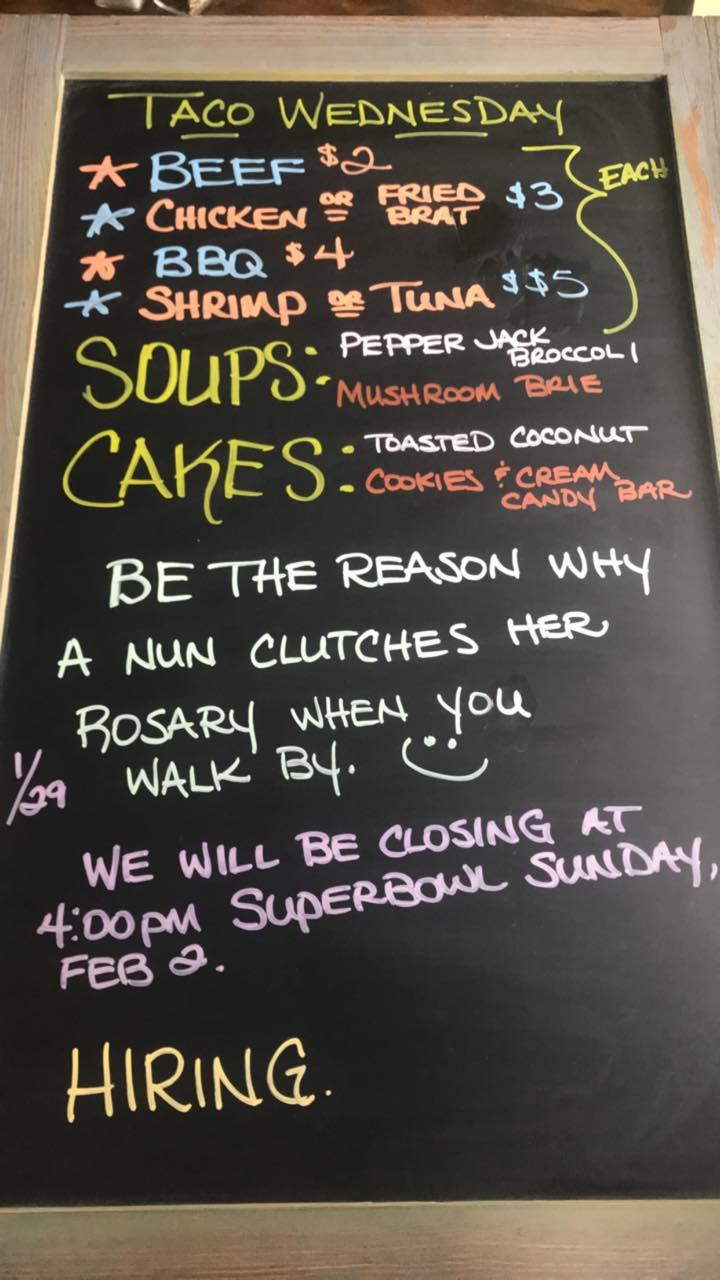 TACO WEDNESDAY
★ BEEF $2
EACH
★ CHICKEN OR FRIED BRAT $3
★ BBQ $4
★ SHRIMP OR TUNA $$5
SOUPS: PEPPER JACK
BROCCOLI
MUSHROOM BRIE
CAKES: TOASTED COCONUT
COOKIES & CREAM
CANDY BAR
BE THE REASON WHY
A NUN CLUTCHES HER
ROSARY WHEN YOU
WALK BY.
1/29
WE WILL BE CLOSING AT
4:00PM SUPERBOWL SUNDAY,
FEB 2.
HIRING.